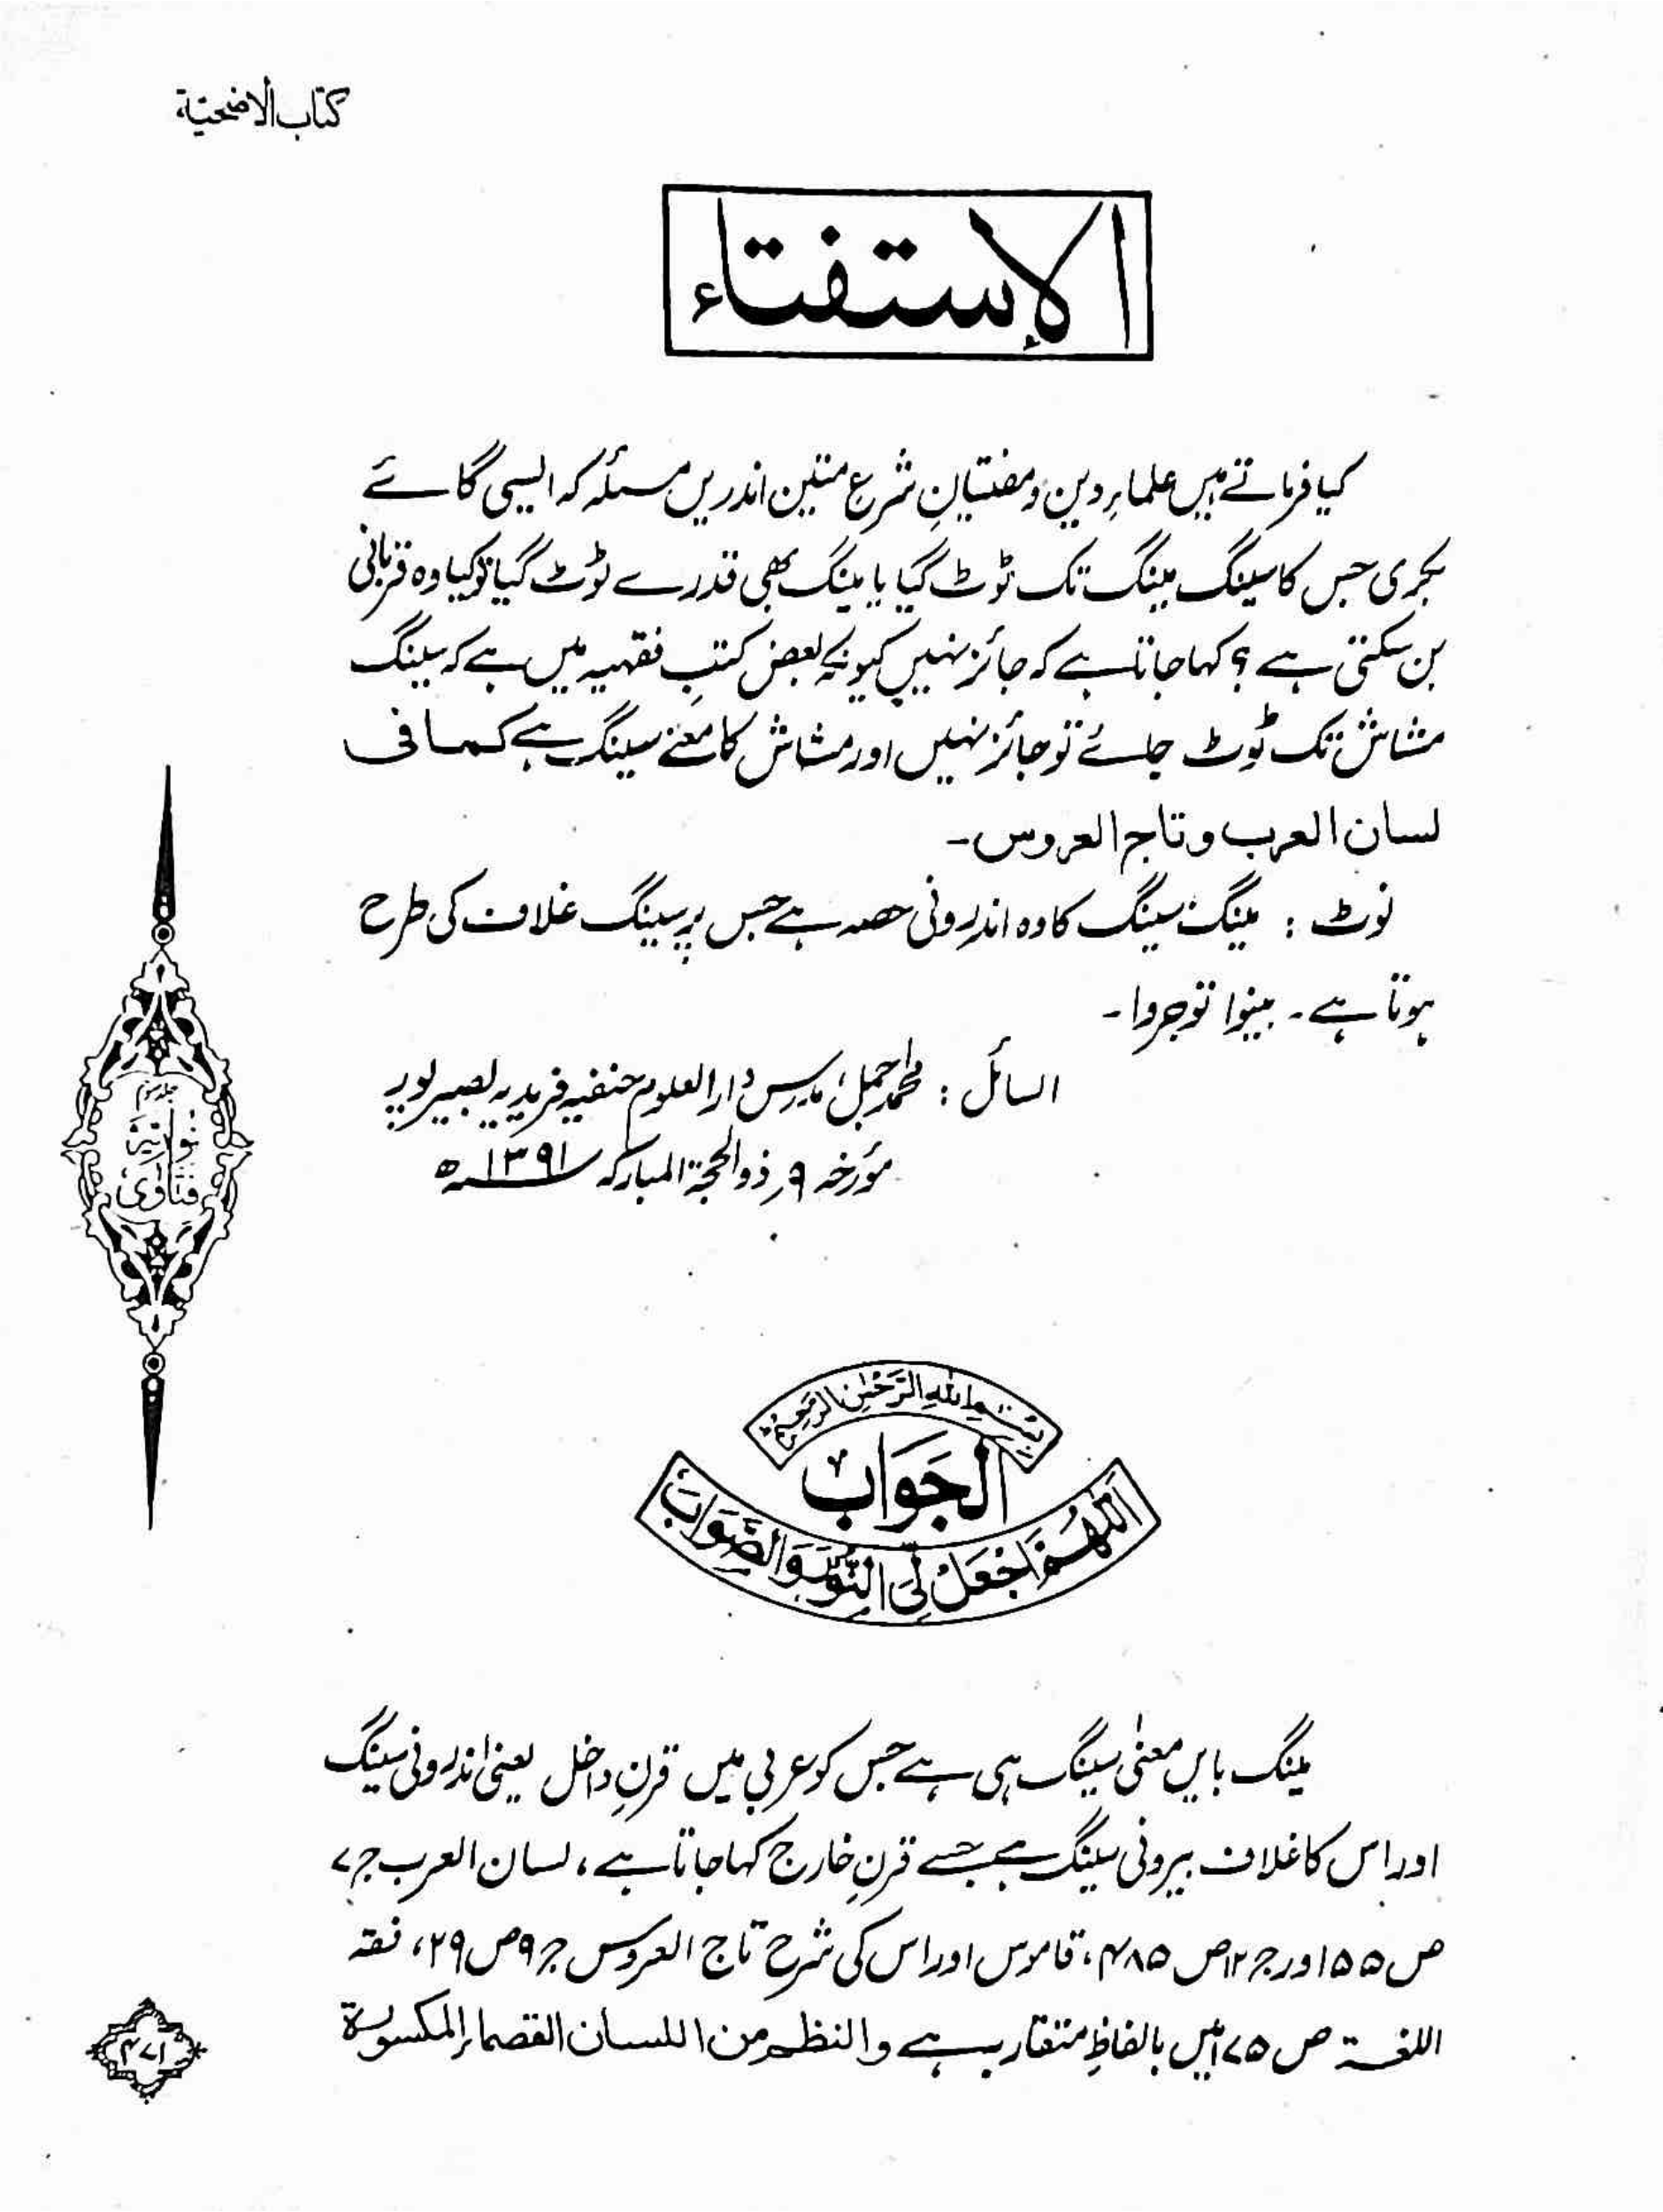 كتاب الاضحية
الإستفتاء
کیا فرماتے ہیں علماءِ دین و مفتیانِ شرع متین اندریں مسئلہ کہ ایسی گائے
بکری جس کا سینگ مینگ تک ٹوٹ گیا یا مینگ بھی قدرے ٹوٹ گیا تو کیا وہ قربانی
بن سکتی ہے ؟ کہا جاتا ہے کہ جائز نہیں کیونکہ بعض کتبِ فقہیہ میں ہے کہ سینگ
مشاش تک ٹوٹ جائے تو جائز نہیں اور مشاش کا معنے سینگ ہے کما فی
لسان العرب و تاج العروس۔
نوٹ : مینگ سینگ کا وہ اندرونی حصہ ہے جس پر سینگ غلاف کی طرح
ہوتا ہے ۔ بینوا توجروا ۔
السائل : محمد اجمل، مدرس دارالعلوم حنفیہ فریدیہ بصیرپور
مؤرخہ ۹؍ ذوالحجۃ المبارکہ ۱۳۹۱ھ
نوریہ
فتاوٰی
بسم الله الرحمن الرحیم
الجواب
اللهم اجعل لی النور والصواب
مینگ بایں معنٰی سینگ ہی ہے جس کو عربی میں قرنِ داخل یعنی اندرونی سینگ
اور اس کا غلاف بیرونی سینگ ہے جسے قرنِ خارج کہا جاتا ہے ، لسان العرب ج ۷
ص ۵۵ اور ج ۱۲ ص ۴۸۵، قاموس اور اس کی شرح تاج العروس ج ۹ ص ۲۹، فقہ
اللغۃ ص ۷۵ میں بالفاظِ متقارب ہے والنظم من اللسان القصماء المکسورۃ
۴۷۱